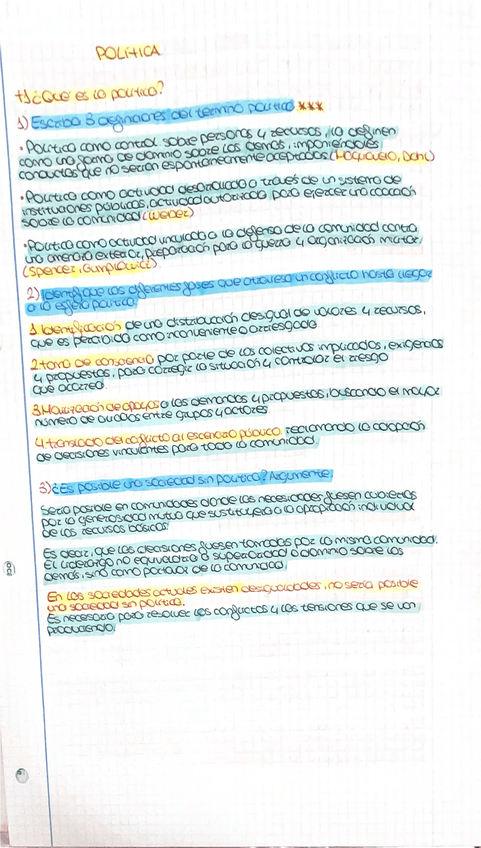 POLÍTICA
T1 ¿Qué es la política?
1) Escriba 3 definiciones del término política ***
· Política como control sobre personas y recursos, la definen
como una forma de dominio sobre los demás, imponiéndoles
conductas que no serían espontáneamente aceptadas (Maquiavelo, Dahl)
· Política como actividad desarrollada a través de un sistema de
instituciones públicas, actividad autorizada para ejercer una coacción
sobre la comunidad (Weber)
· Política como actividad vinculada a la defensa de la comunidad contra
una amenaza exterior, preparación para la guerra y organización militar.
(Spencer, Gumplowicz)
2) Identifique las diferentes fases que atraviesa un conflicto hasta llegar
a la esfera política.
1. Identificación de una distribución desigual de valores y recursos,
que es percibida como inconveniente o arriesgada
2. toma de consciencia por parte de los colectivos implicados, exigencias
y propuestas, para corregir la situación y controlar el riesgo
que acarrea.
3. Movilización de apoyos a las demandas y propuestas, buscando el mayor
número de aliados entre grupos y actores.
4. traslado del conflicto al escenario público, reclamando la adopción
de decisiones vinculantes para toda la comunidad.
3) ¿Es posible una sociedad sin política? Argumente.
Sería posible en comunidades donde las necesidades fuesen cubiertas
por la generosidad mutua que sustituyera a la apropiación individual
de los recursos básicos.
Es decir, que las decisiones fuesen tomadas por la misma comunidad.
El liderazgo no equivaldría a superioridad o dominio sobre los
demás, sino como portavoz de la comunidad.
En las sociedades actuales existen desigualdades, no sería posible
una sociedad sin política.
Es necesario para resolver los conflictos y las tensiones que se van
produciendo.